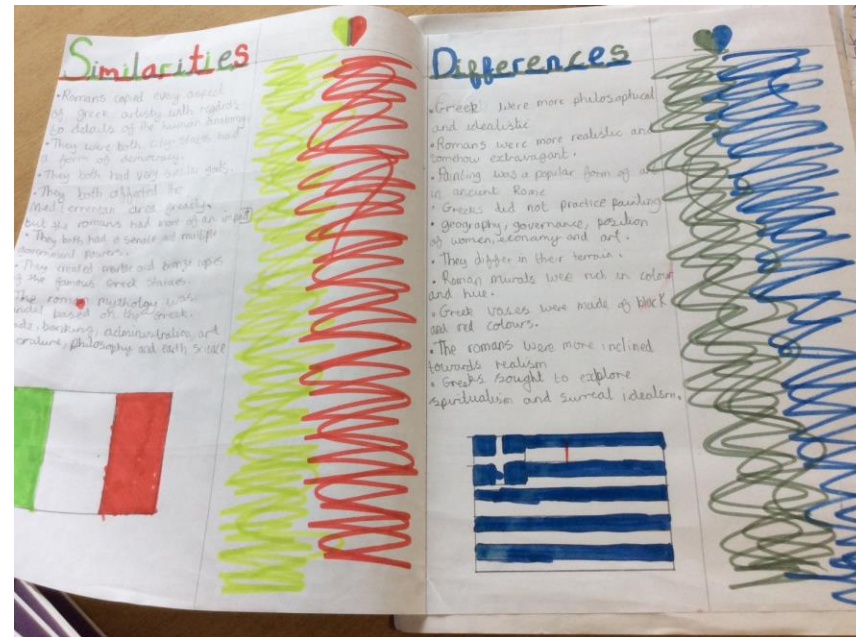 Similarities
• Romans copied every aspect
of greek artistry with regards
to details of the human anatomy
• They were both city-states have
a form of democracy.
• They both had very similar gods.
• They both affected the
Mediterranean area greatly.
but the romans had more of an impact
• They both had a senate and multiple
government powers.
• They created marble and bronze copies
of the famous Greek
The roman mythology was
based on the Greek.
banking, administration, art
philosophy and earth science
Differences
• Greek were more philosophical
and idealistic
• Romans were more realistic and
somehow extravagant.
• Painting was a popular form of art
in ancient Rome
• Greeks did not practice painting
• geography, governance, position
of women, economy and art.
• They differ in their terrain.
• Roman murals were rich in colour
and hue.
• Greek vases were made of black
and red colours.
• The romans were more inclined
towards realism
• Greeks sought to explore
spiritualism and surreal idealism.